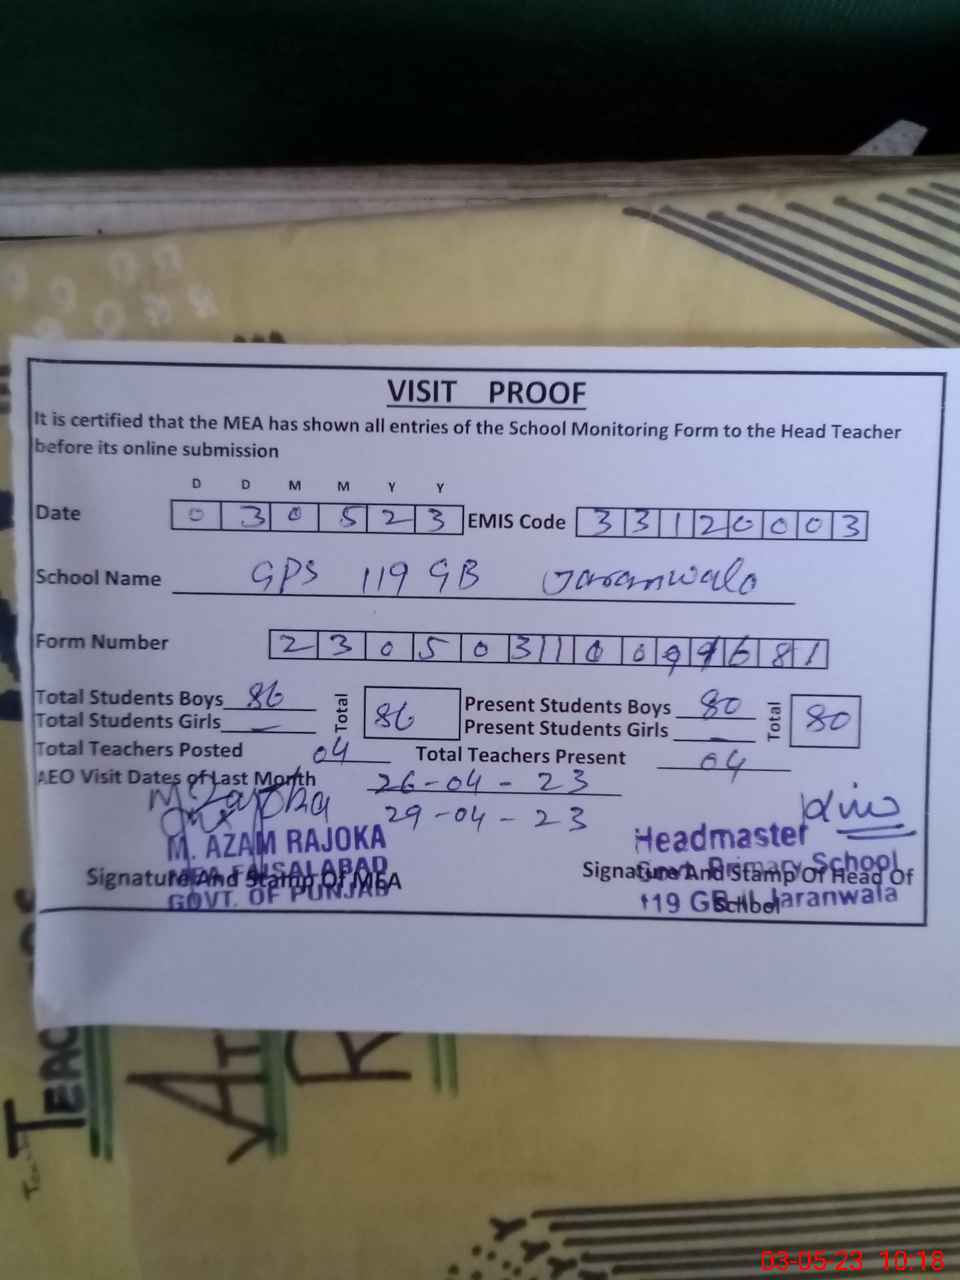 VISIT PROOF
It is certified that the MEA has shown all entries of the School Monitoring Form to the Head Teacher
before its online submission
D D M M Y Y
Date 0 3 0 5 2 3 EMIS Code 3 3 1 2 0 0 0 3
School Name GPS 119 GB Jaranwala
Form Number 2 3 0 5 0 3 1 0 0 9 9 6 8 1
Total Students Boys 86 Total 86 Present Students Boys 80 Total 80
Total Students Girls — Present Students Girls —
Total Teachers Posted 04 Total Teachers Present 04
AEO Visit Dates of Last Month 26-04-23
29-04-23
M. AZAM RAJOKA
MEA FAISALABAD
GOVT. OF PUNJAB
Signature And Stamp Of MEA
Headmaster
Govt. Primary School
119 GB Jaranwala
Signature And Stamp Of Head Of
School
TEAC
03-05-23 10:18